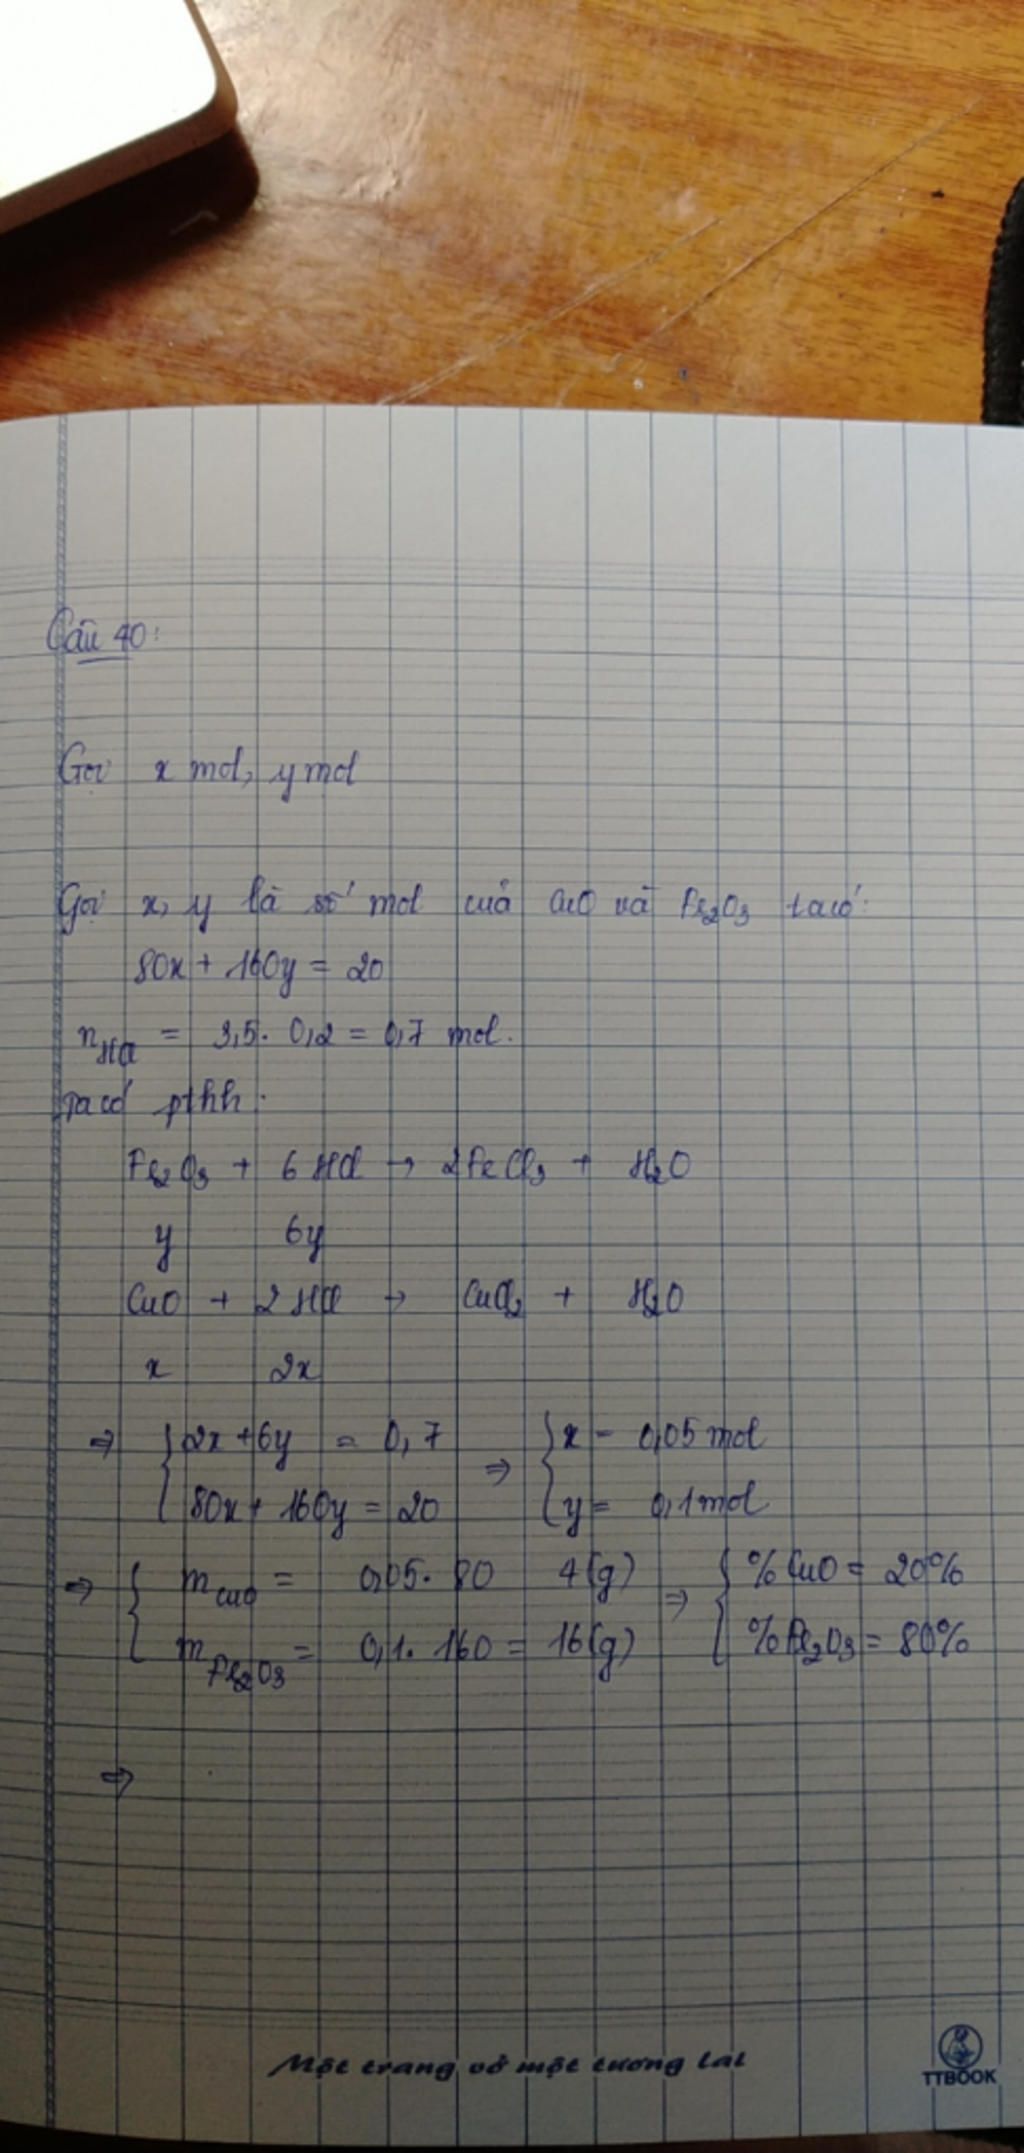 Câu 40:
Gọi x mol, y mol
Gọi x, y là số mol của CuO và Fe2O3 ta có:
80x + 160y = 20
nHCl = 3,5. 0,2 = 0,7 mol.
Ta có pthh:
Fe2O3 + 6 HCl → 2FeCl3 + H2O
y 6y
CuO + 2 HCl → CuCl2 + H2O
x 2x
⇒ { 2x + 6y = 0,7 ⇒ { x = 0,05 mol
80x + 160y = 20 y = 0,1 mol
⇒ { mCuO = 0,05. 80 4(g) ⇒ { % CuO = 20%
mFe2O3 = 0,1. 160 = 16(g) % Fe2O3 = 80%
⇒
Một trang vở một tương lai
TTBOOK